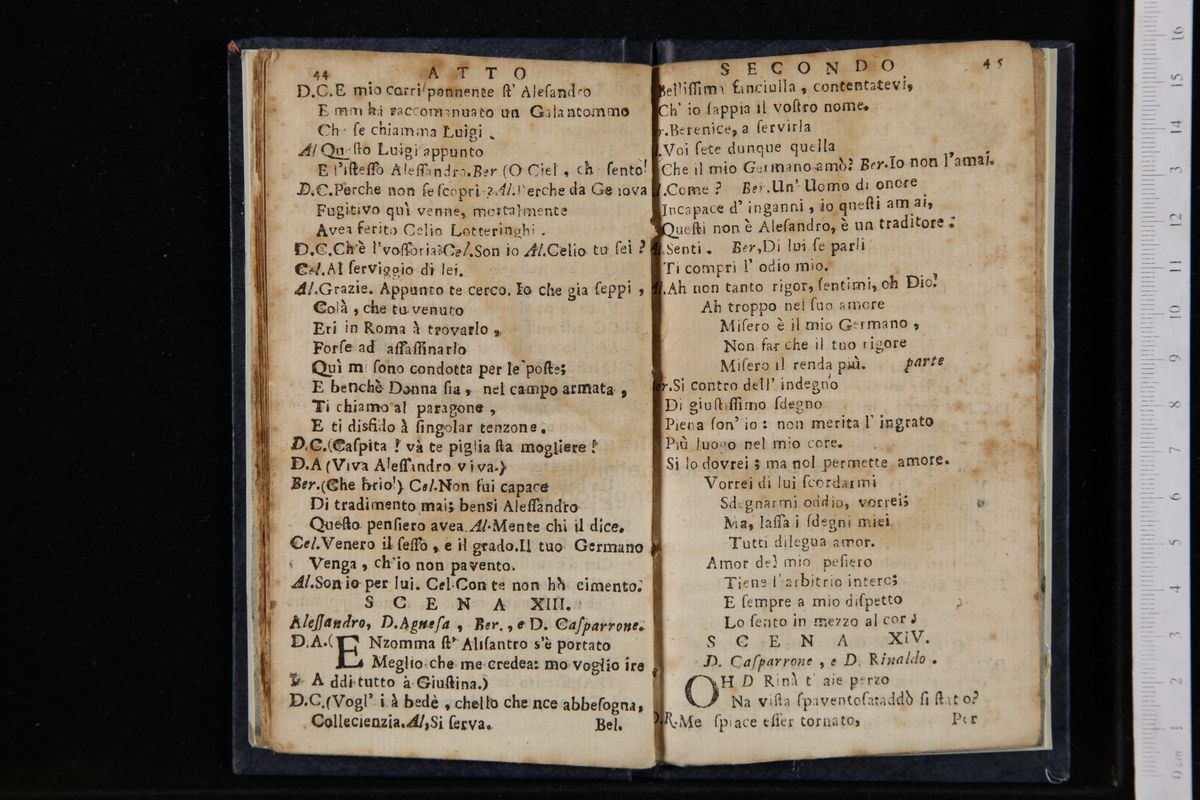 44 ATTO
D.C.E mio corriſponnente ſt' Aleſandro
E mm hà raccomannato un Galantommo
Che ſe chiamma Luigi.
Al Queſto Luigi appunto
E l'iſteſſo Aleſſandro.Ber (O Ciel, ch ſento!
D.C.Perche non ſe ſcopri? Al.Perche da Genova
Fugitivo quì venne, mortalmente
Avea ferito Celio Lotteringhi.
D.C.Ch'è l'voſſoria? Cel.Son io Al.Celio tu ſei?
Cel.Al ſerviggio di lei.
Al.Grazie. Appunto te cerco. Io che gia ſeppi,
Colà, che tu venuto
Eri in Roma à trovarlo,
Forſe ad aſſaſſinarlo
Quì mi ſono condotta per le poſte;
E benchè Donna ſia, nel campo armata,
Ti chiamo al paragone,
E ti disfido à ſingolar tenzone.
D.C.(Caſpita! và te piglia ſta mogliere!
D.A (Viva Aleſſandro viva.)
Ber.(Che brio!) Cel.Non fui capace
Di tradimento mai; bensi Aleſſandro
Queſto penſiero avea. Al.Mente chi il dice.
Cel.Venero il ſeſſo, e il grado.Il tuo Germano
Venga, ch'io non pavento.
Al.Son io per lui. Cel.Con te non hò cimento.
SCENA XIII.
Aleſſandro, D.Agneſa, Ber., e D. Caſparrone.
D.A.(ENzomma ſt' Aliſantro s'è portato
Meglio che me credea: mo voglio ire
A ddi tutto à Giuſtina.)
D.C.(Vogl' i à bedè, chello che nce abbeſogna,
Collecienzia.Al,Si ſerva. Bel.
SECONDO 45
Belliſſima fanciulla, contentatevi,
Ch' io ſappia il voſtro nome.
r.Berenice, a ſervirla
.Voi ſete dunque quella
Che il mio Germano amò? Ber.Io non l'amai.
l.Come? Ber.Un' Uomo di onore
Incapace d' inganni, io queſti amai,
Queſti non è Aleſandro, è un traditore:
Al.Senti. Ber,Di lui ſe parli
Ti compri l' odio mio.
Al.Ah non tanto rigor, ſentimi, oh Dio!
Ah troppo nel ſuo amore
Miſero è il mio Germano,
Non far che il tuo rigore
Miſero il renda più. parte
er.Si contro dell' indegno
Di giuſtiſſimo ſdegno
Piena ſon' io: non merita l' ingrato
Più luogo nel mio core.
Si lo dovrei; ma nol permette amore.
Vorrei di lui ſcordarmi
Sdegnarmi oddio, vorrei;
Ma, laſſa i ſdegni miei
Tutti dilegua amor.
Amor del mio peſiero
Tiene l'arbitrio intero;
E ſempre a mio diſpetto
Lo ſento in mezzo al cor;
SCENA XIV.
D. Caſparrone, e D. Rinaldo.
OH D Rinà t' aie perzo
Na viſta ſpaventoſa: addò ſi ſtato?
D.R.Me ſpiace eſſer tornato, Per